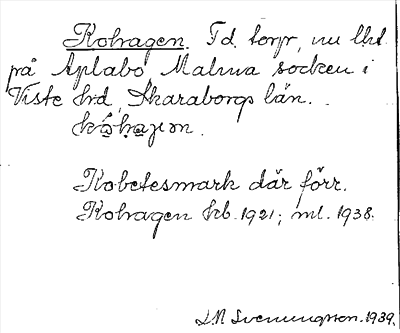 Kohagen. F.d. torp, nu lht
på Aplabo Malma socken i
Viste hd, Skaraborgs län.
Kobetesmark där förr.
Kohagen kb. 1921; ml. 1938.
S.N. Svenungsson. 1939.